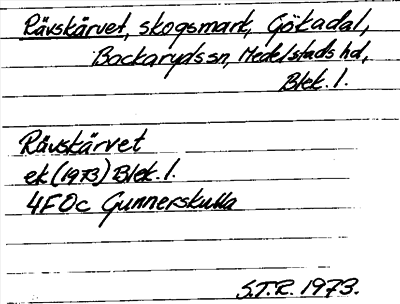 Rävskärvet, skogsmark, Gökadal,
Backaryds sn, Medelstads hd,
Blek. l.
Rävskärvet
ek (1973) Blek. l.
4F0c Gunnerskulla
S.T.R. 1973.